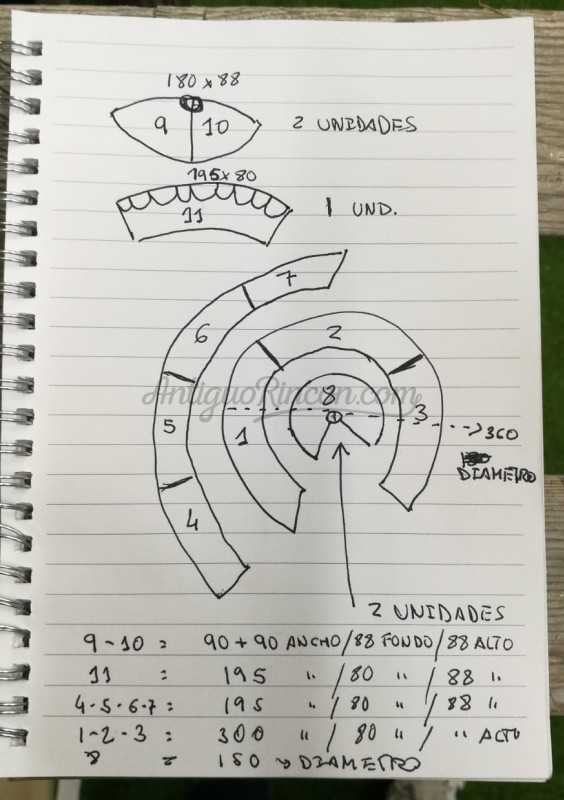 180 x 88
9 10 2 UNIDADES
195 x 80
11 1 UND.
7
6
2
AntiguoRincon.com
8
5
1
3
360
DIAMETRO
4
2 UNIDADES
9-10 = 90 + 90 ANCHO / 88 FONDO / 88 ALTO
11 = 195 " / 80 " / 88 "
4-5-6-7 = 195 " / 80 " / 88 "
1-2-3 = 300 " / 80 " / " ALTO
8 = 150 → DIAMETRO